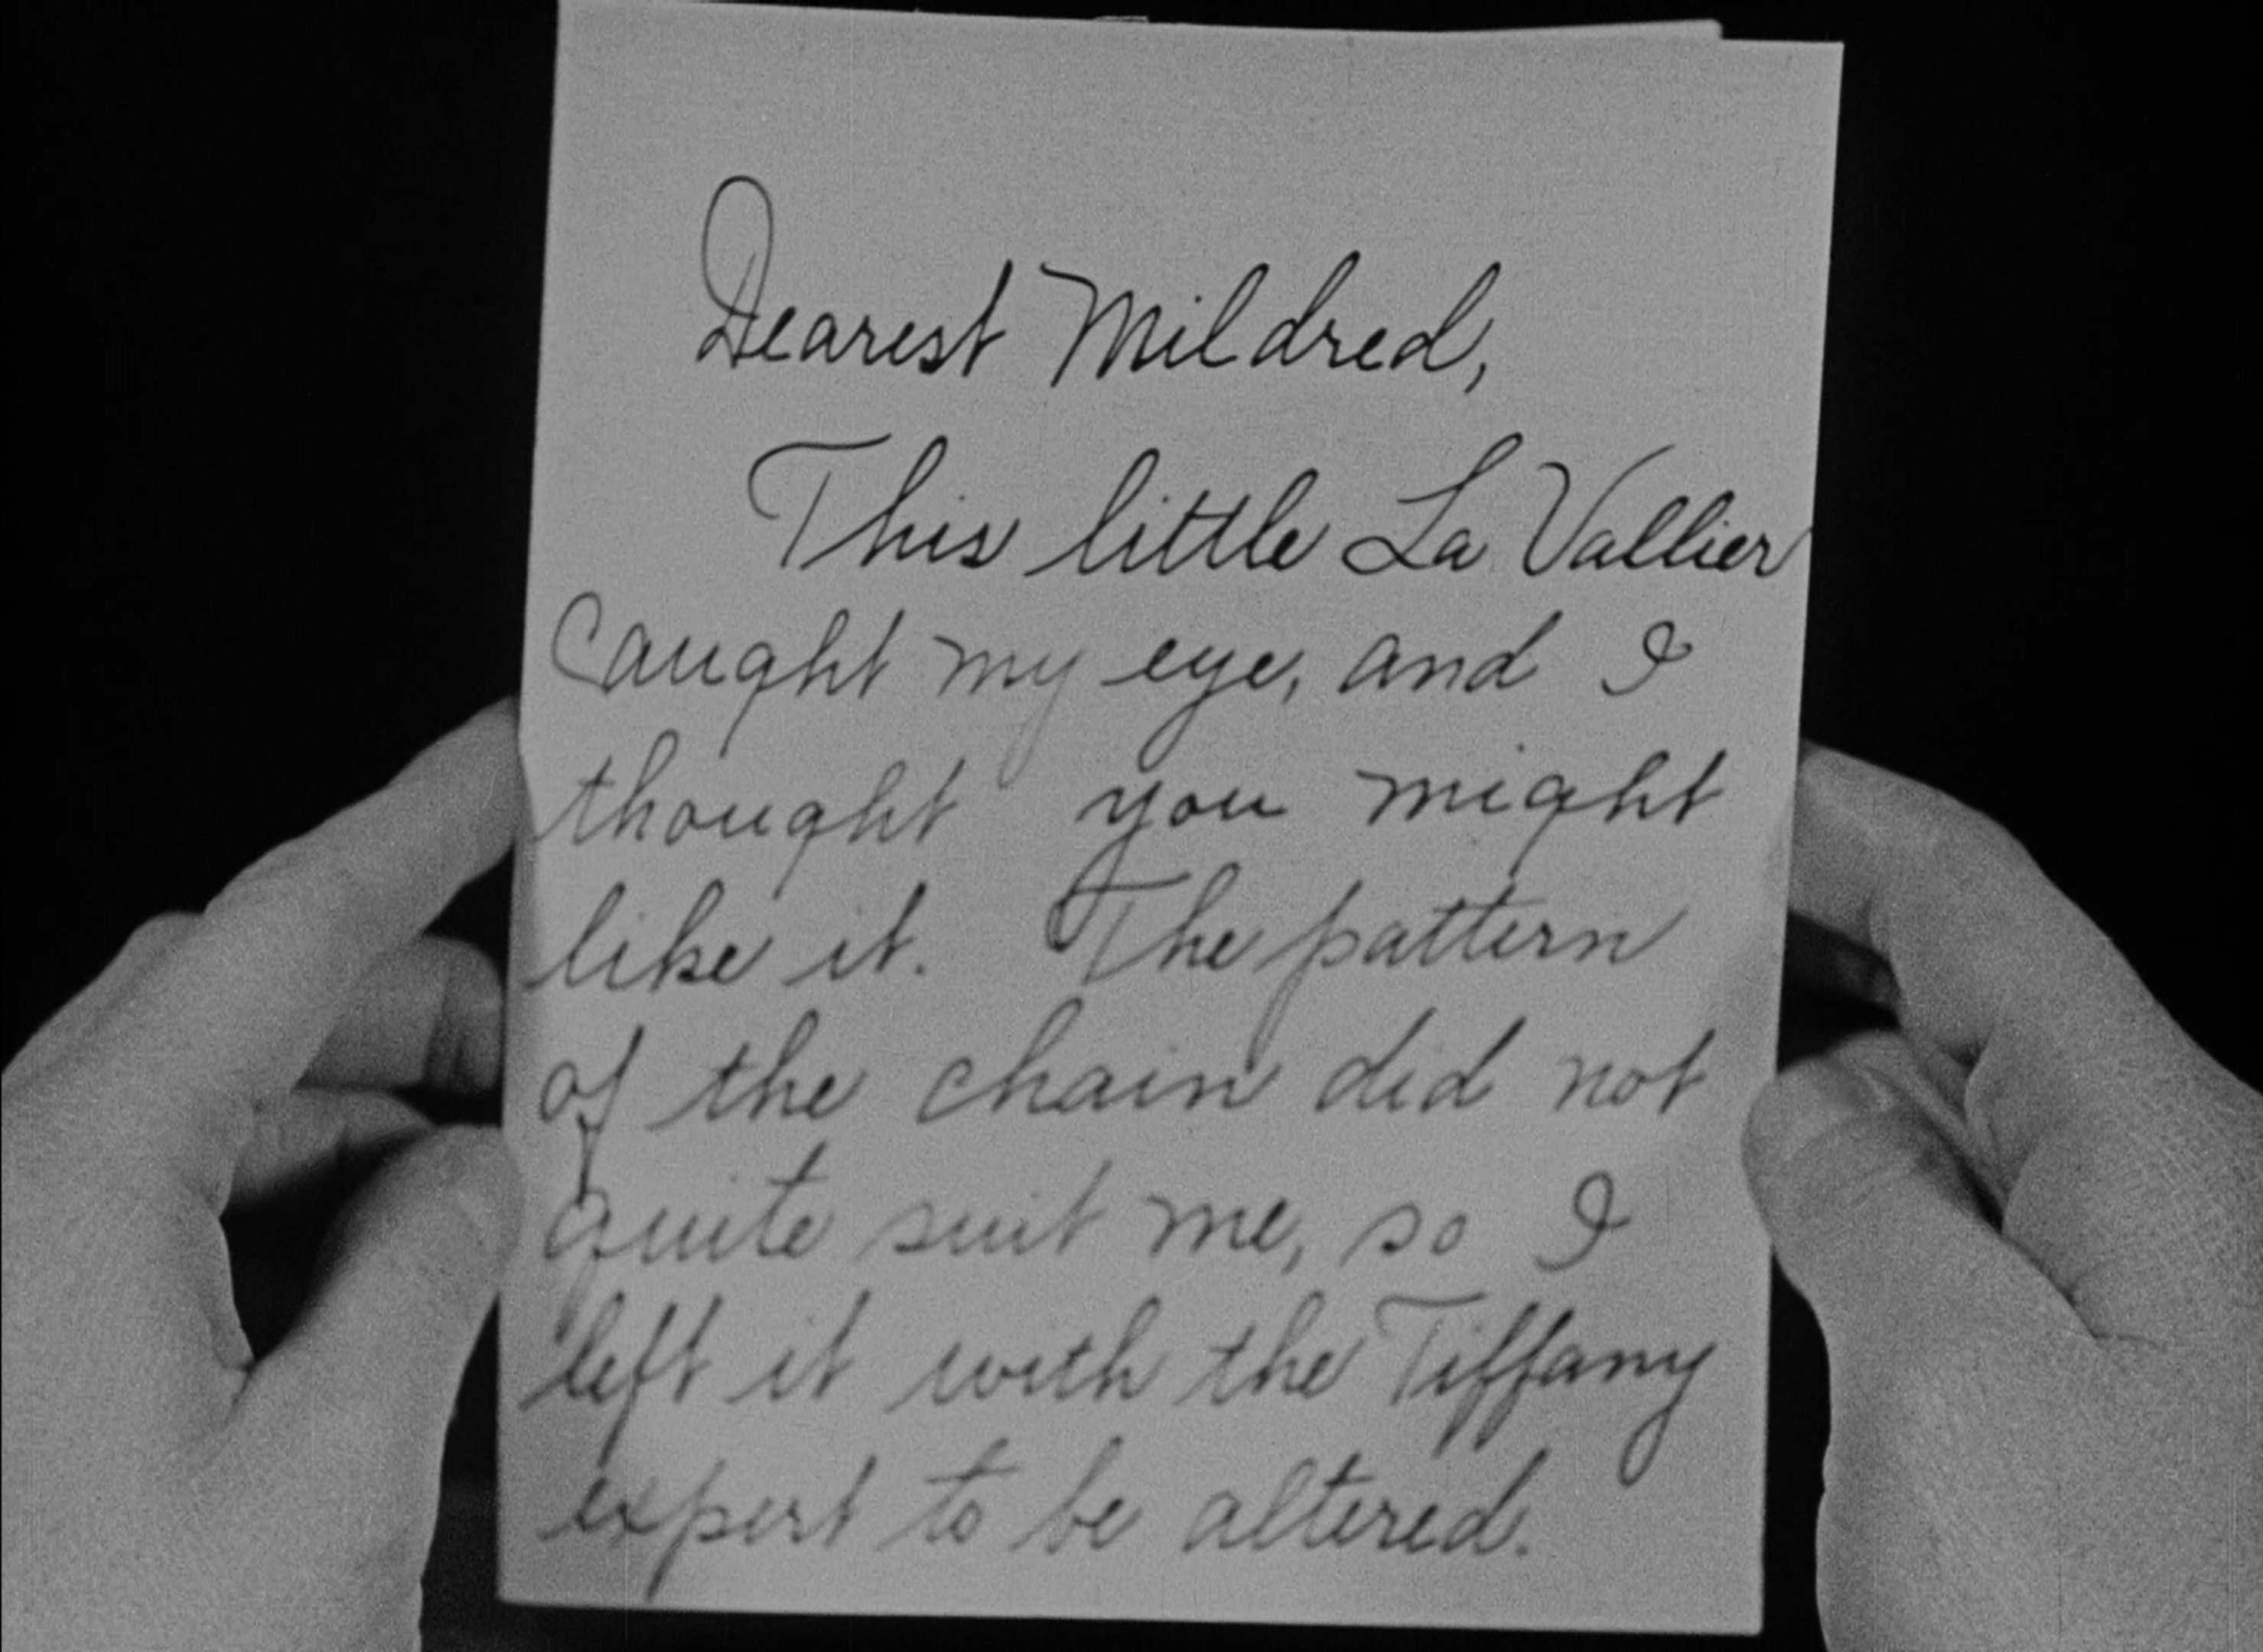 Dearest Mildred,
This little La Vallier
caught my eye, and I
thought you might
like it. The pattern
of the chain did not
quite suit me, so I
left it with the Tiffany
expert to be altered.